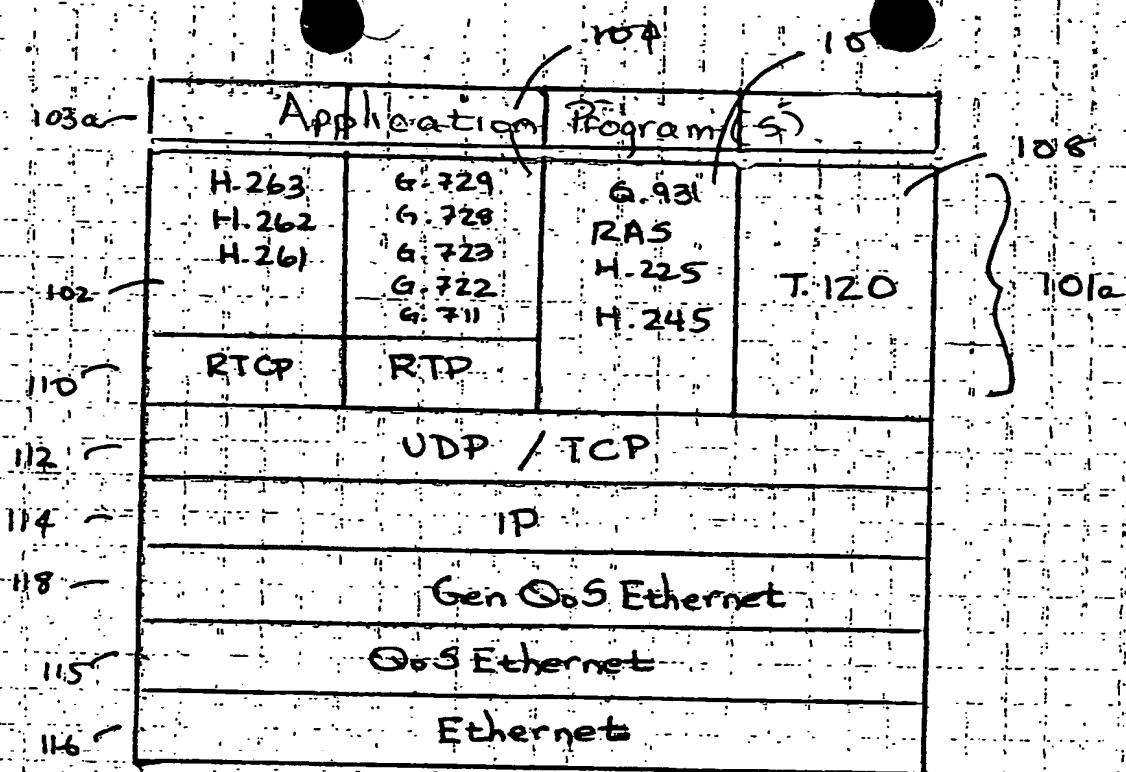 104
10
103a
Application Program(s)
108
H.263
H.262
H.261
G.729
G.728
G.723
G.722
G.711
Q.931
RAS
H.225
H.245
T.120
102
101a
RTCP
RTP
110
UDP / TCP
112
IP
114
Gen QoS Ethernet
118
QoS Ethernet
115
Ethernet
116